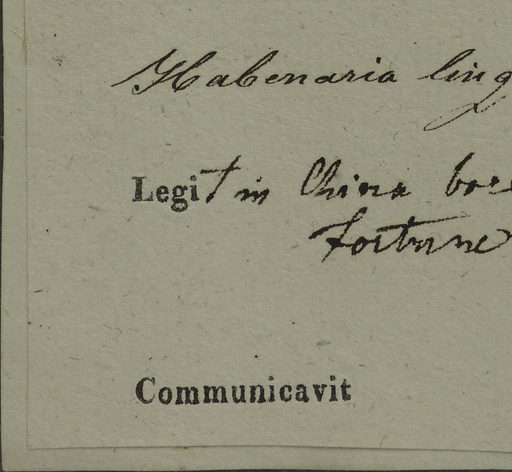 Habenaria ling
Legit in China bore
Fortune
Communicavit